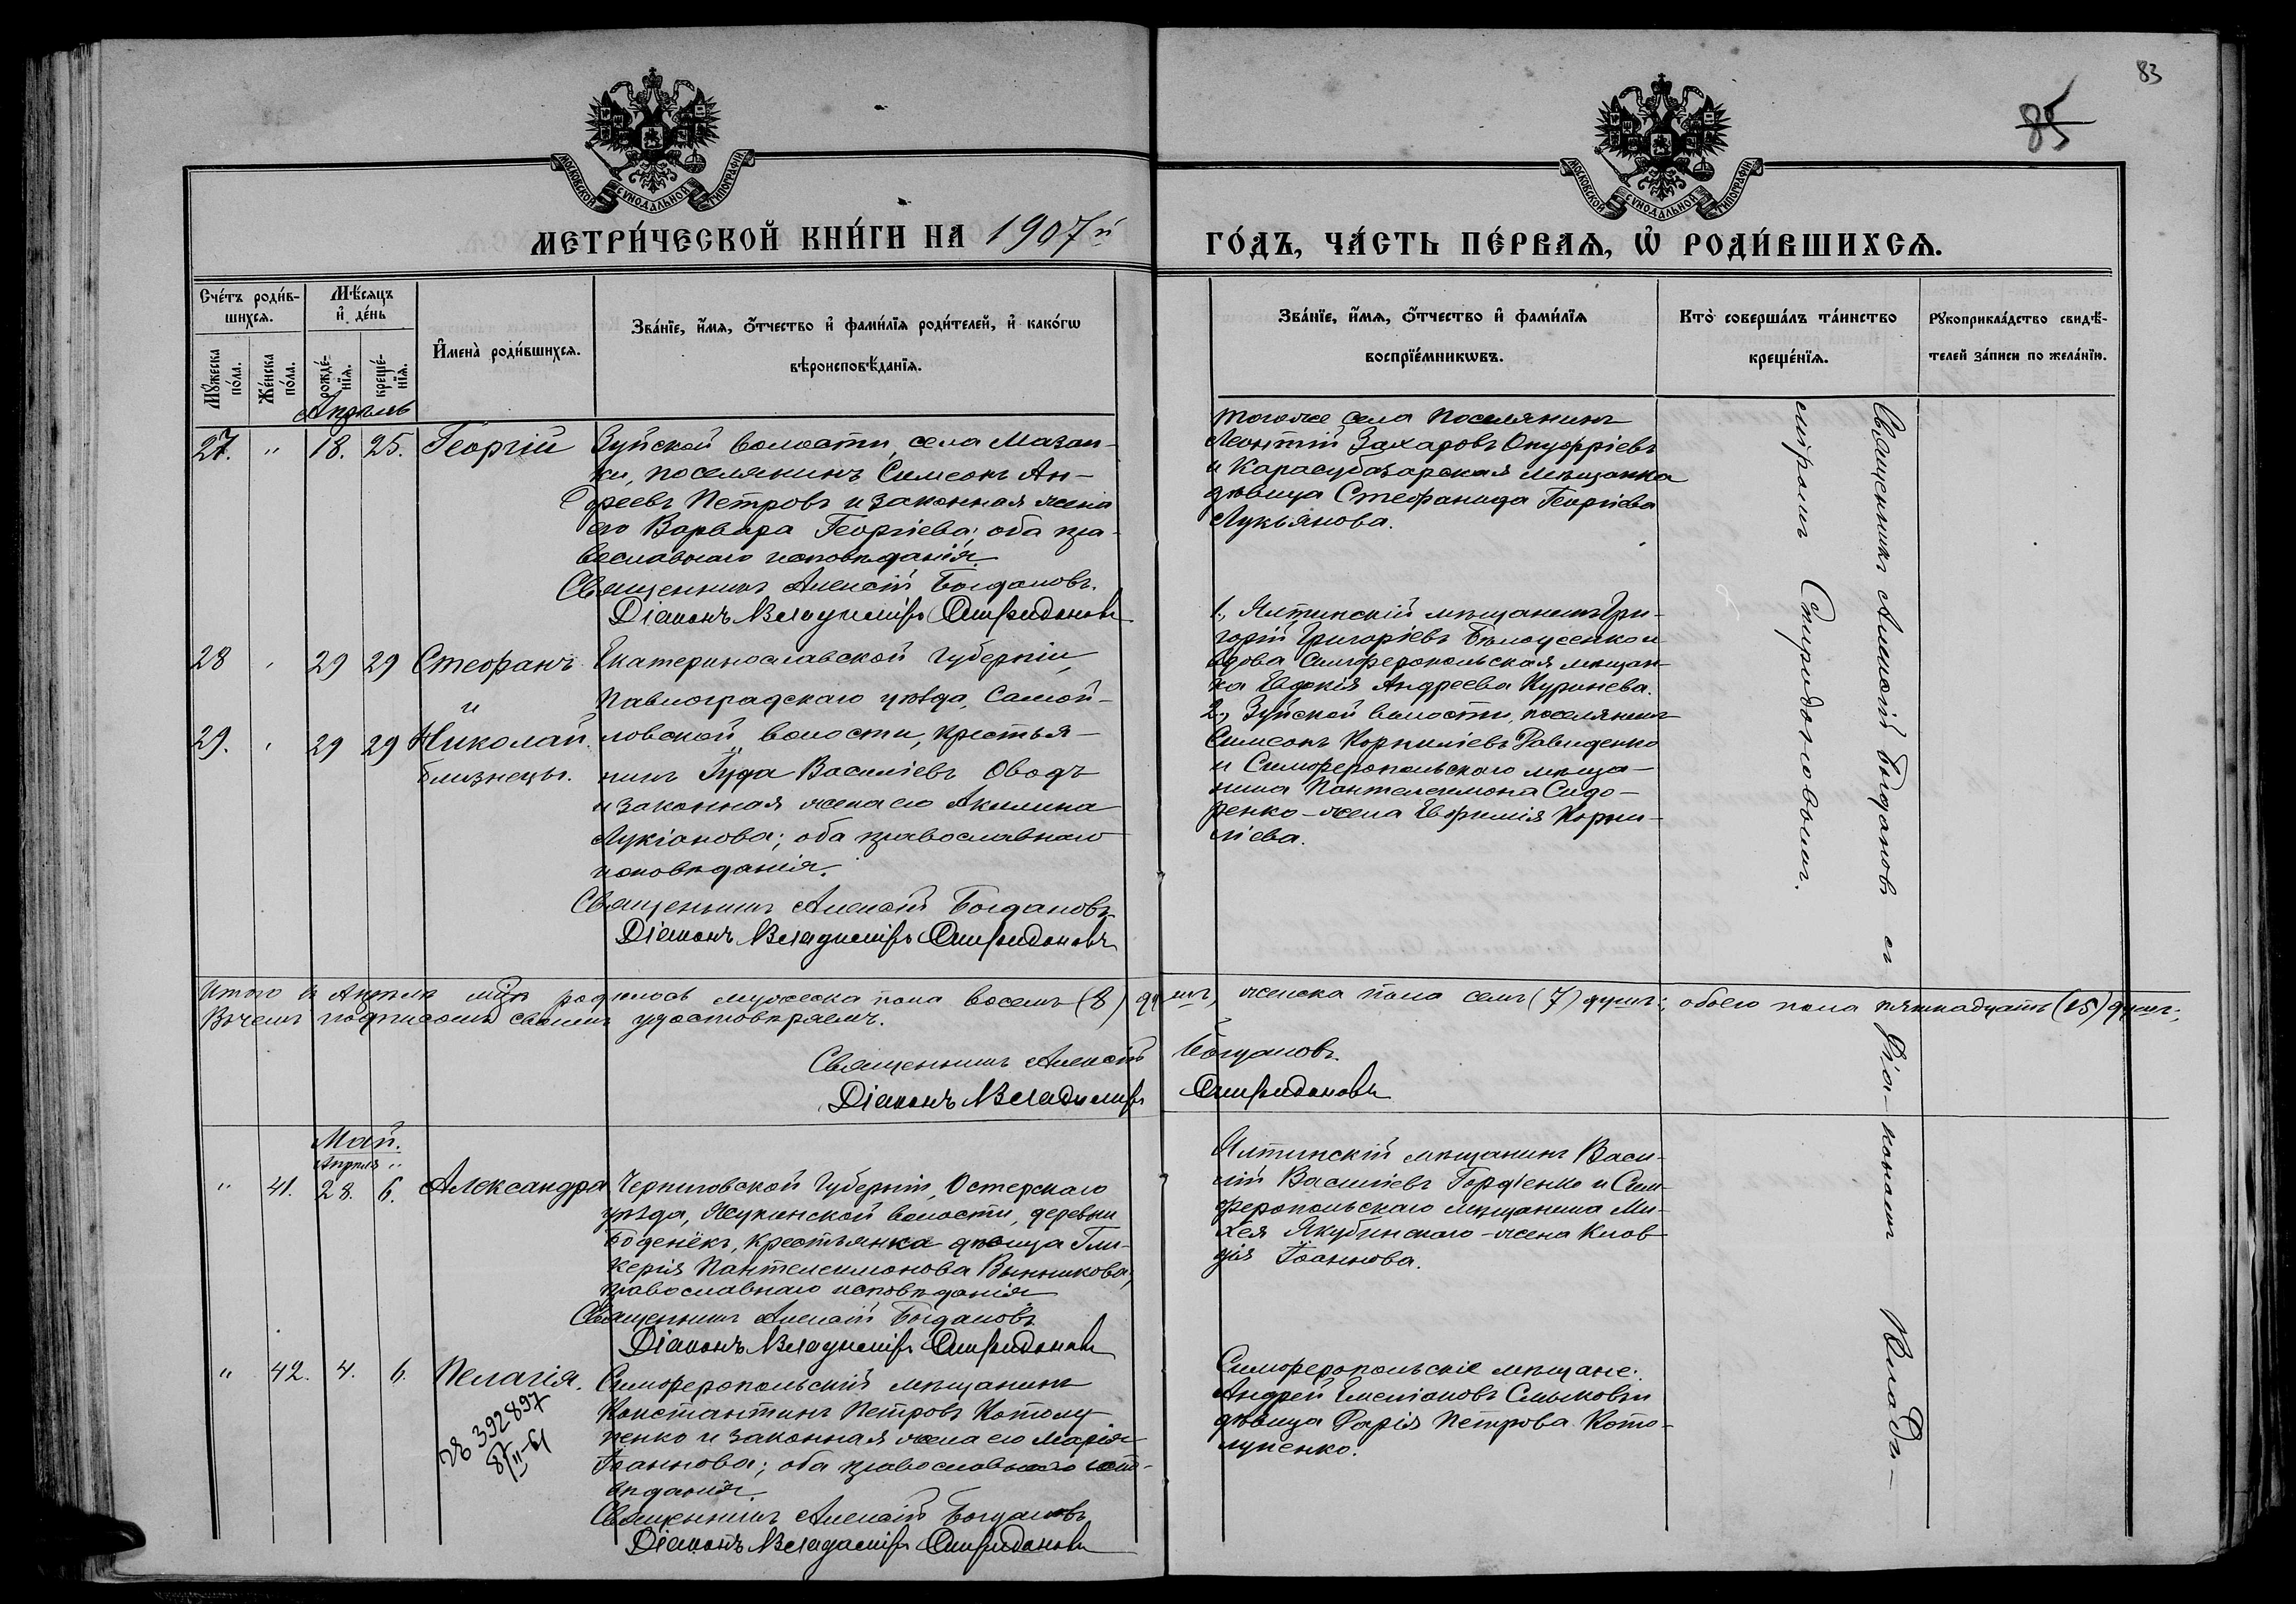 83
85
МОСКОВСКОЙ СѴНОДАЛЬНОЙ ТИПОГРАФІИ.
МОСКОВСКОЙ СѴНОДАЛЬНОЙ ТИПОГРАФІИ.
МЕТРИ́ЧЕСКОЙ КНИ́ГИ НА 1907й
ГО́ДЪ, ЧА́СТЬ ПЕ́РВАѦ, Ѽ РОДИ́ВШИХСѦ.
Сче́тъ роди́в-
шихсѧ.
Мꙋ́жеска по́ла.
Же́нска по́ла.
Мѣ́сѧцъ
и҆ де́нь
рожде́-нїѧ.
креще́-нїѧ.
И҆мена̀ роди́вшихсѧ.
Зва́нїе, и҆́мѧ, ѻ҆́тчество и҆ фами́лїѧ роди́телей, и҆ како́гѡ
вѣроисповѣ́данїѧ.
Зва́нїе, и҆́мѧ, ѻ҆́тчество и҆ фами́лїѧ
воспрїе́мникѡвъ.
Кто̀ соверша́лъ та́инство
креще́нїѧ.
Рꙋкоприкла́дство свидѣ́-
телей за́писи по жела́нїю.
Апрѣль
27. " 18. 25. Георгій
Зуйской волости, села Мазан-
ки, поселянинъ Симеонъ Ан-
дреевъ Петровъ и законная жена
его Варвара Георгіева; оба пра-
вославнаго исповѣданія.
Священникъ Алексій Богдановъ.
Діаконъ Владиміръ Спиридоновъ
тогоже села поселянинъ
Леонтій Захаровъ Онуфріевъ
и Карасубазарская мѣщанка
дѣвица Стефанида Георгіева
Лукьянова.
28 " 29 29 Стефанъ
и
29. " 29 29 Николай
близнецы.
Екатеринославской губерніи,
Павлоградскаго уѣзда, Самой-
ловской волости, крестья-
нинъ Іуда Василіевъ Оводъ
и законная жена его Акилина
Лукіанова; оба православнаго
исповѣданія.
Священникъ Алексій Богдановъ
Діаконъ Владиміръ Спиридоновъ
1., Ялтинскій мѣщанинъ Гри-
горій Григоріевъ Бѣлоусенко и
вдова Симферопольская мѣщан-
ка Евдокія Андреева Куринева.
2., Зуйской волости, поселянинъ
Симеонъ Корниліевъ Давиденко
и Симферопольскаго мѣща-
нина Пантелеимона Сидо-
ренко - жена Евфимія Корни-
ліева.
Священникъ Алексій Богдановъ съ Діа-кономъ Влади-
міромъ Спиридоновымъ.
Итого въ Апрѣлѣ мцѣ родилось мужеска пола восемь (8) душъ, женска пола семь (7) душъ; обоего пола пятнадцать (15) душъ;
Въ чемъ подписомъ своимъ удостовѣряемъ.
Священникъ Алексій Богдановъ.
Діаконъ Владиміръ Спиридоновъ
Май.
Апрѣля "
" 41. 28. 6. Александра
Черниговской губерніи, Остерскаго
уѣзда, Жукинской волости, деревни
Боденёкъ, крестьянка дѣвица Гли-
керія Пантелеимонова Вынникова;
православнаго исповѣданія
Священникъ Алексій Богдановъ
Діаконъ Владиміръ Спиридоновъ
Ялтинскій мѣщанинъ Васи-
лій Василіевъ Гордіенко и Сим-
феропольскаго мѣщанина Ми-
хея Якубинскаго - жена Клав-
дія Іоаннова.
" 42. 4. 6. Пелагія.
392897
8/II-61
Симферопольскій мѣщанинъ
Константинъ Петровъ Котолу-
пенко и законная жена его Марія
Іоаннова; оба православнаго испо-
вѣданія
Священникъ Алексій Богдановъ
Діаконъ Владиміръ Спиридоновъ
Симферопольскіе мѣщане:
Андрей Емеліановъ Слыковъ и
дѣвица Дарія Петрова Кото-
лупенко.